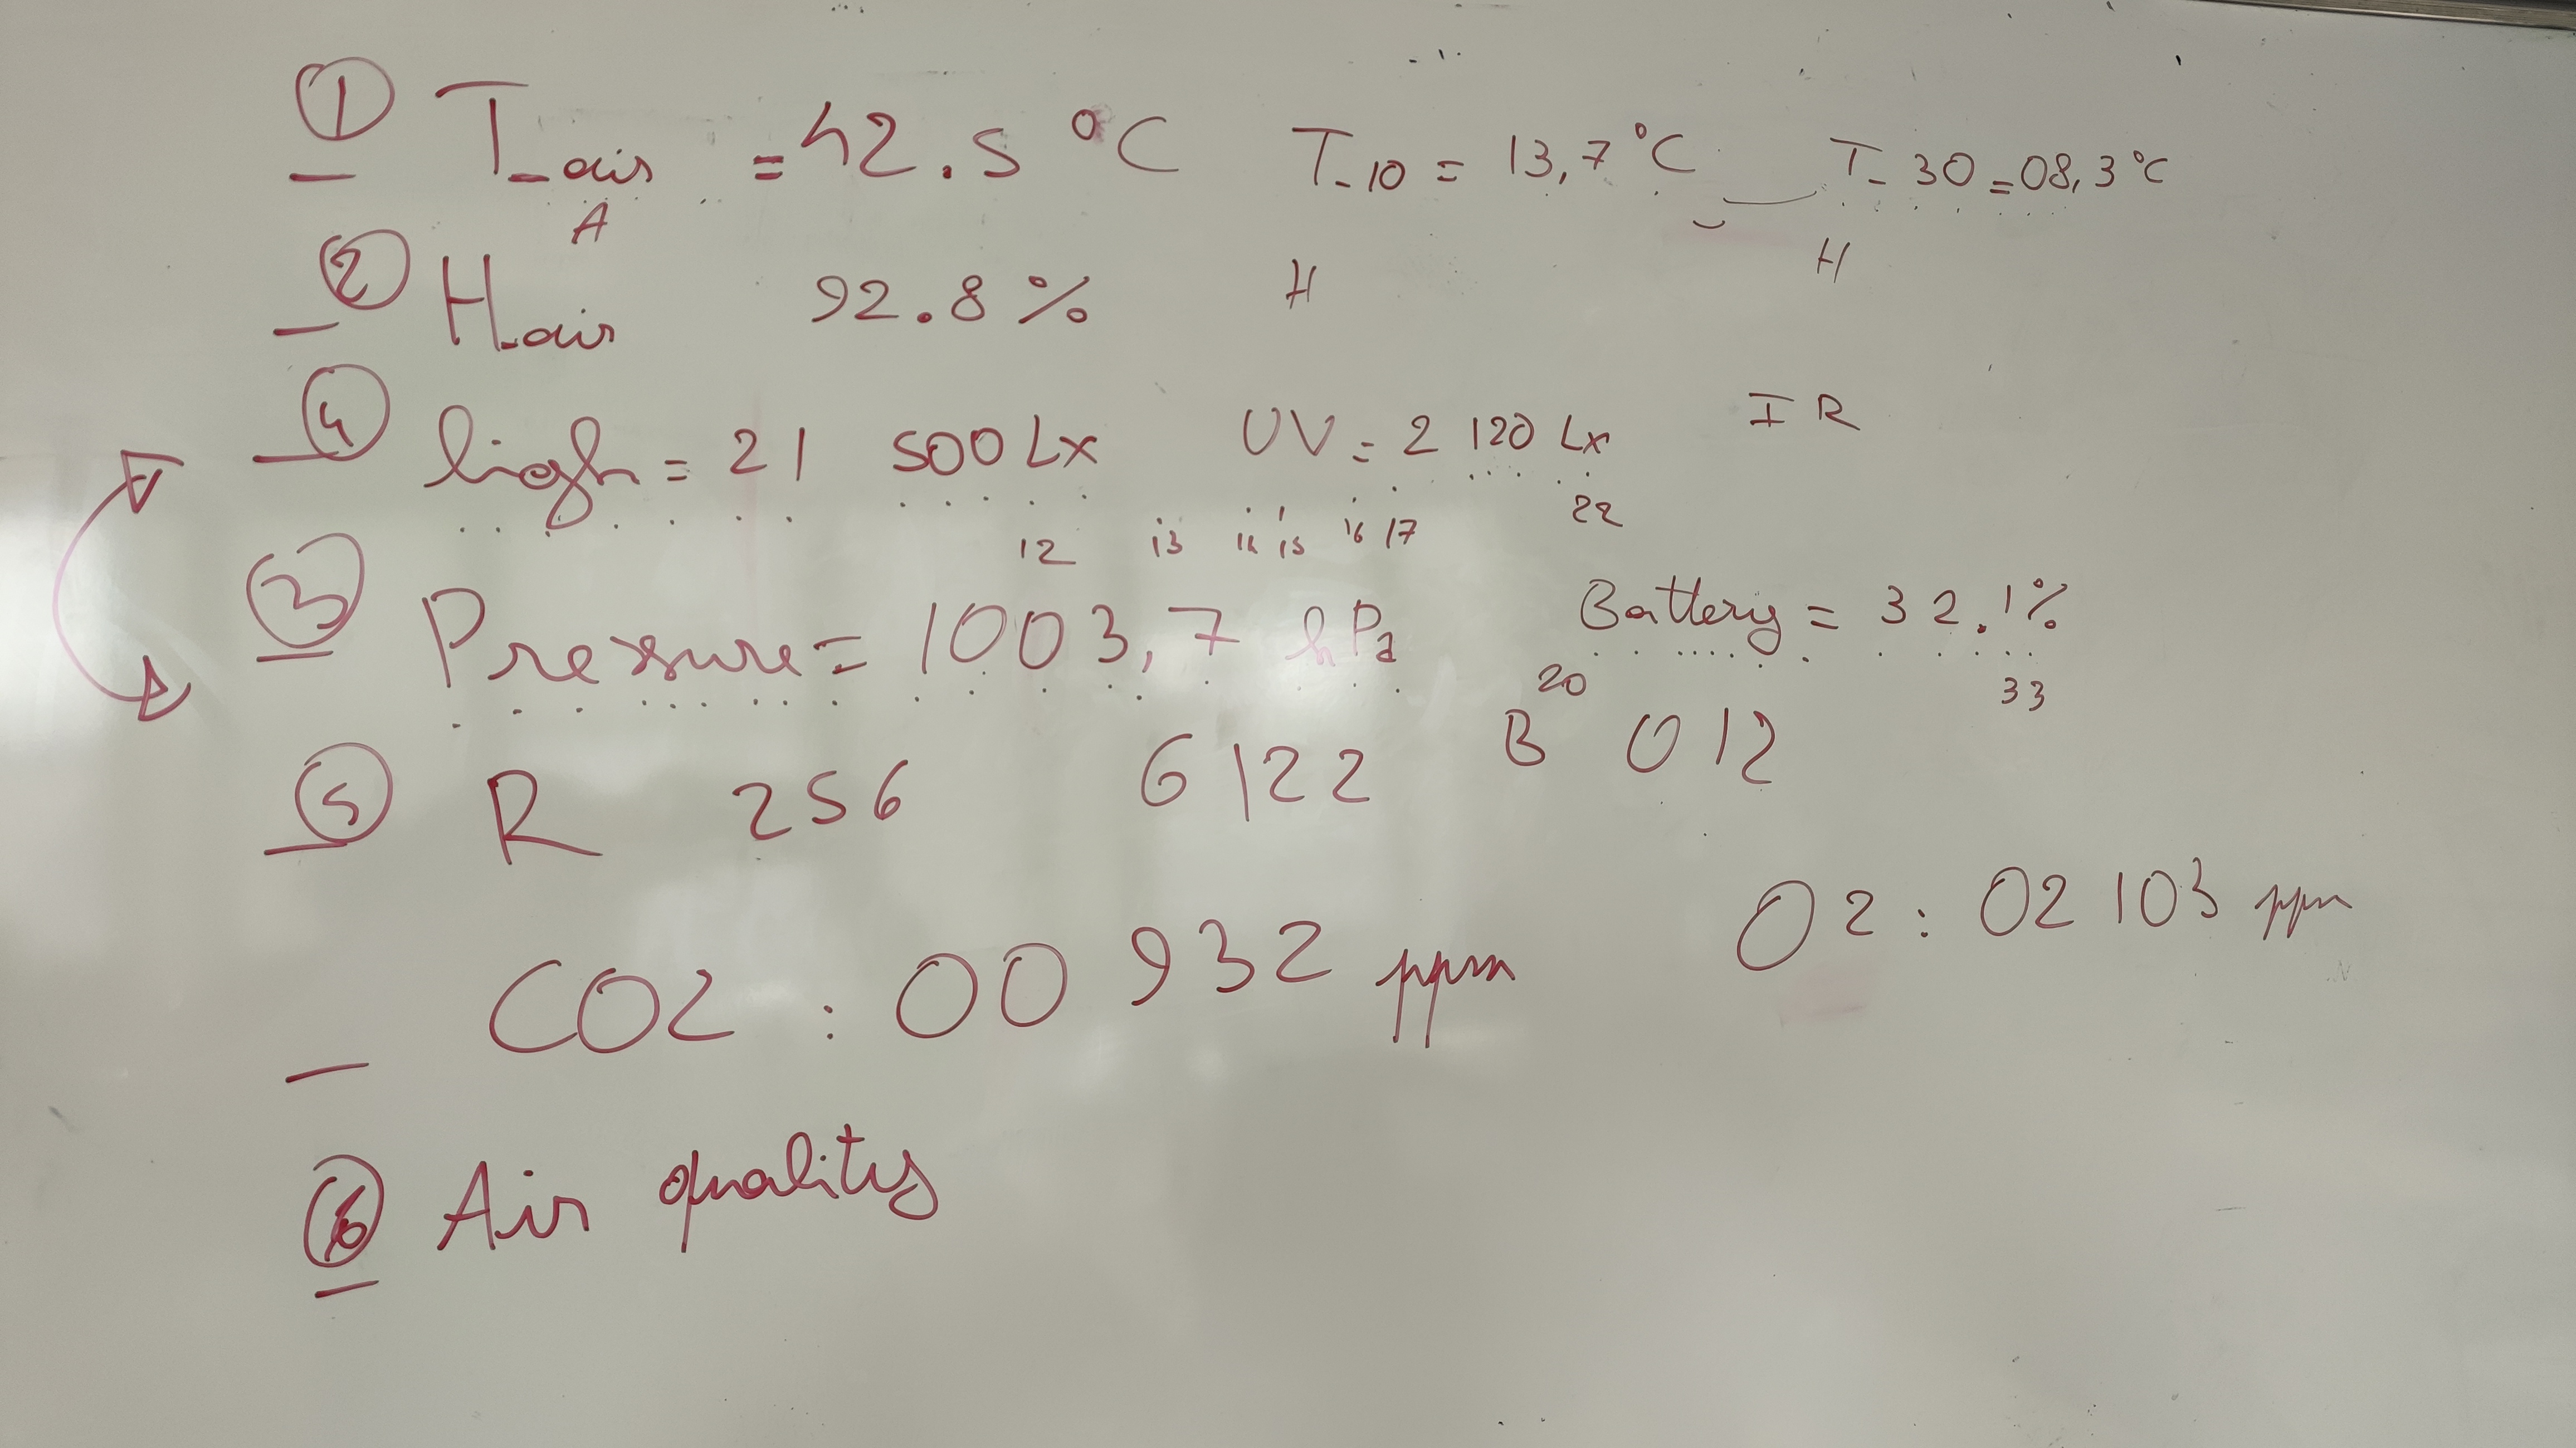 ① T_air = 42.5 °C T_10 = 13,7 °C T_30 = 08,3 °C
A
② H_air 92.8 % H H
④ ligh = 21 500 Lx UV = 2 120 Lx IR
12 13 14 15 16 17 22
③ Pressure = 1003,7 hPa Battery = 32.1%
20 33
⑤ R 256 G 122 B 012
CO2 : 00 932 ppm O2 : 02 103 ppm
⑥ Air quality